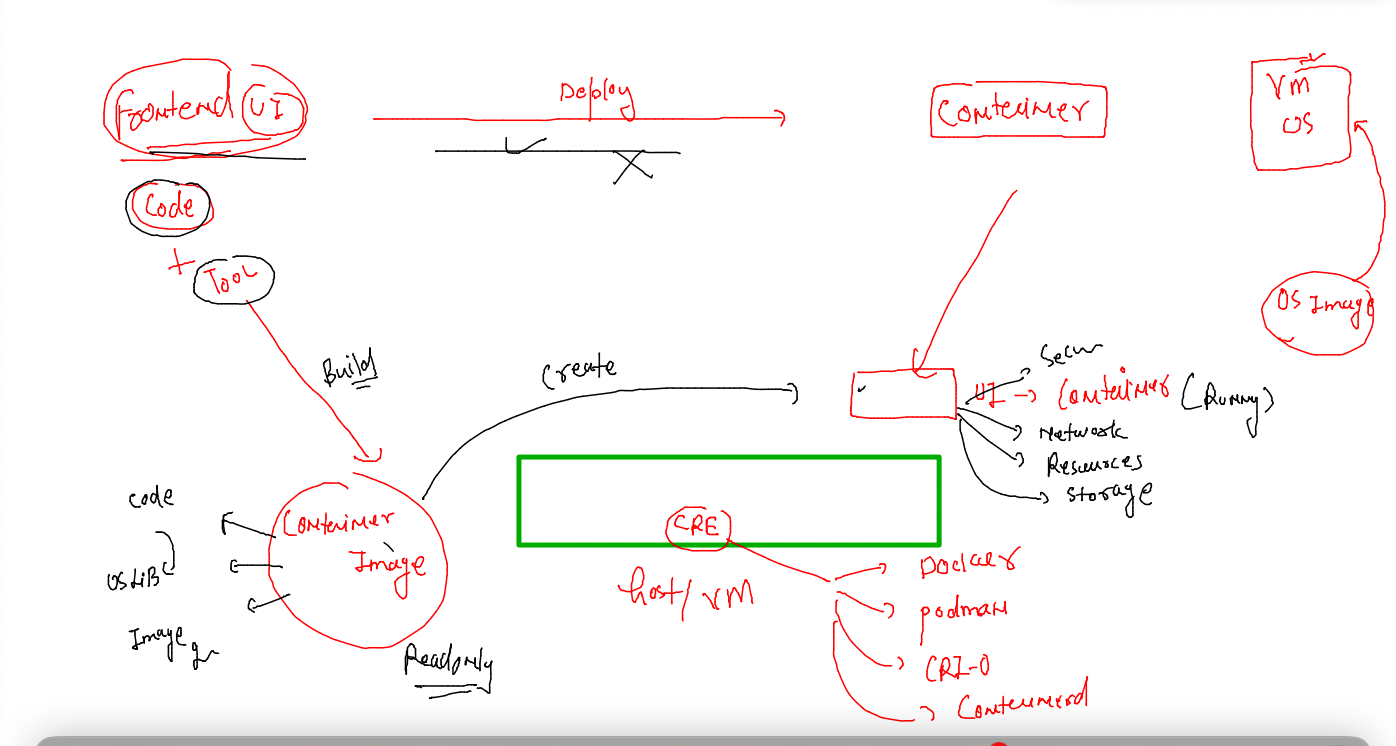 Frontend UI
Deploy
Container
VM
OS
Code
+
TOOL
OS Image
Build
Create
Secur
UI → Container (Runny)
Network
Resources
Storage
Code
OS LiB
Image
Container
Image
Readonly
CRE
host/VM
Docker
podman
CRI-O
Containerd